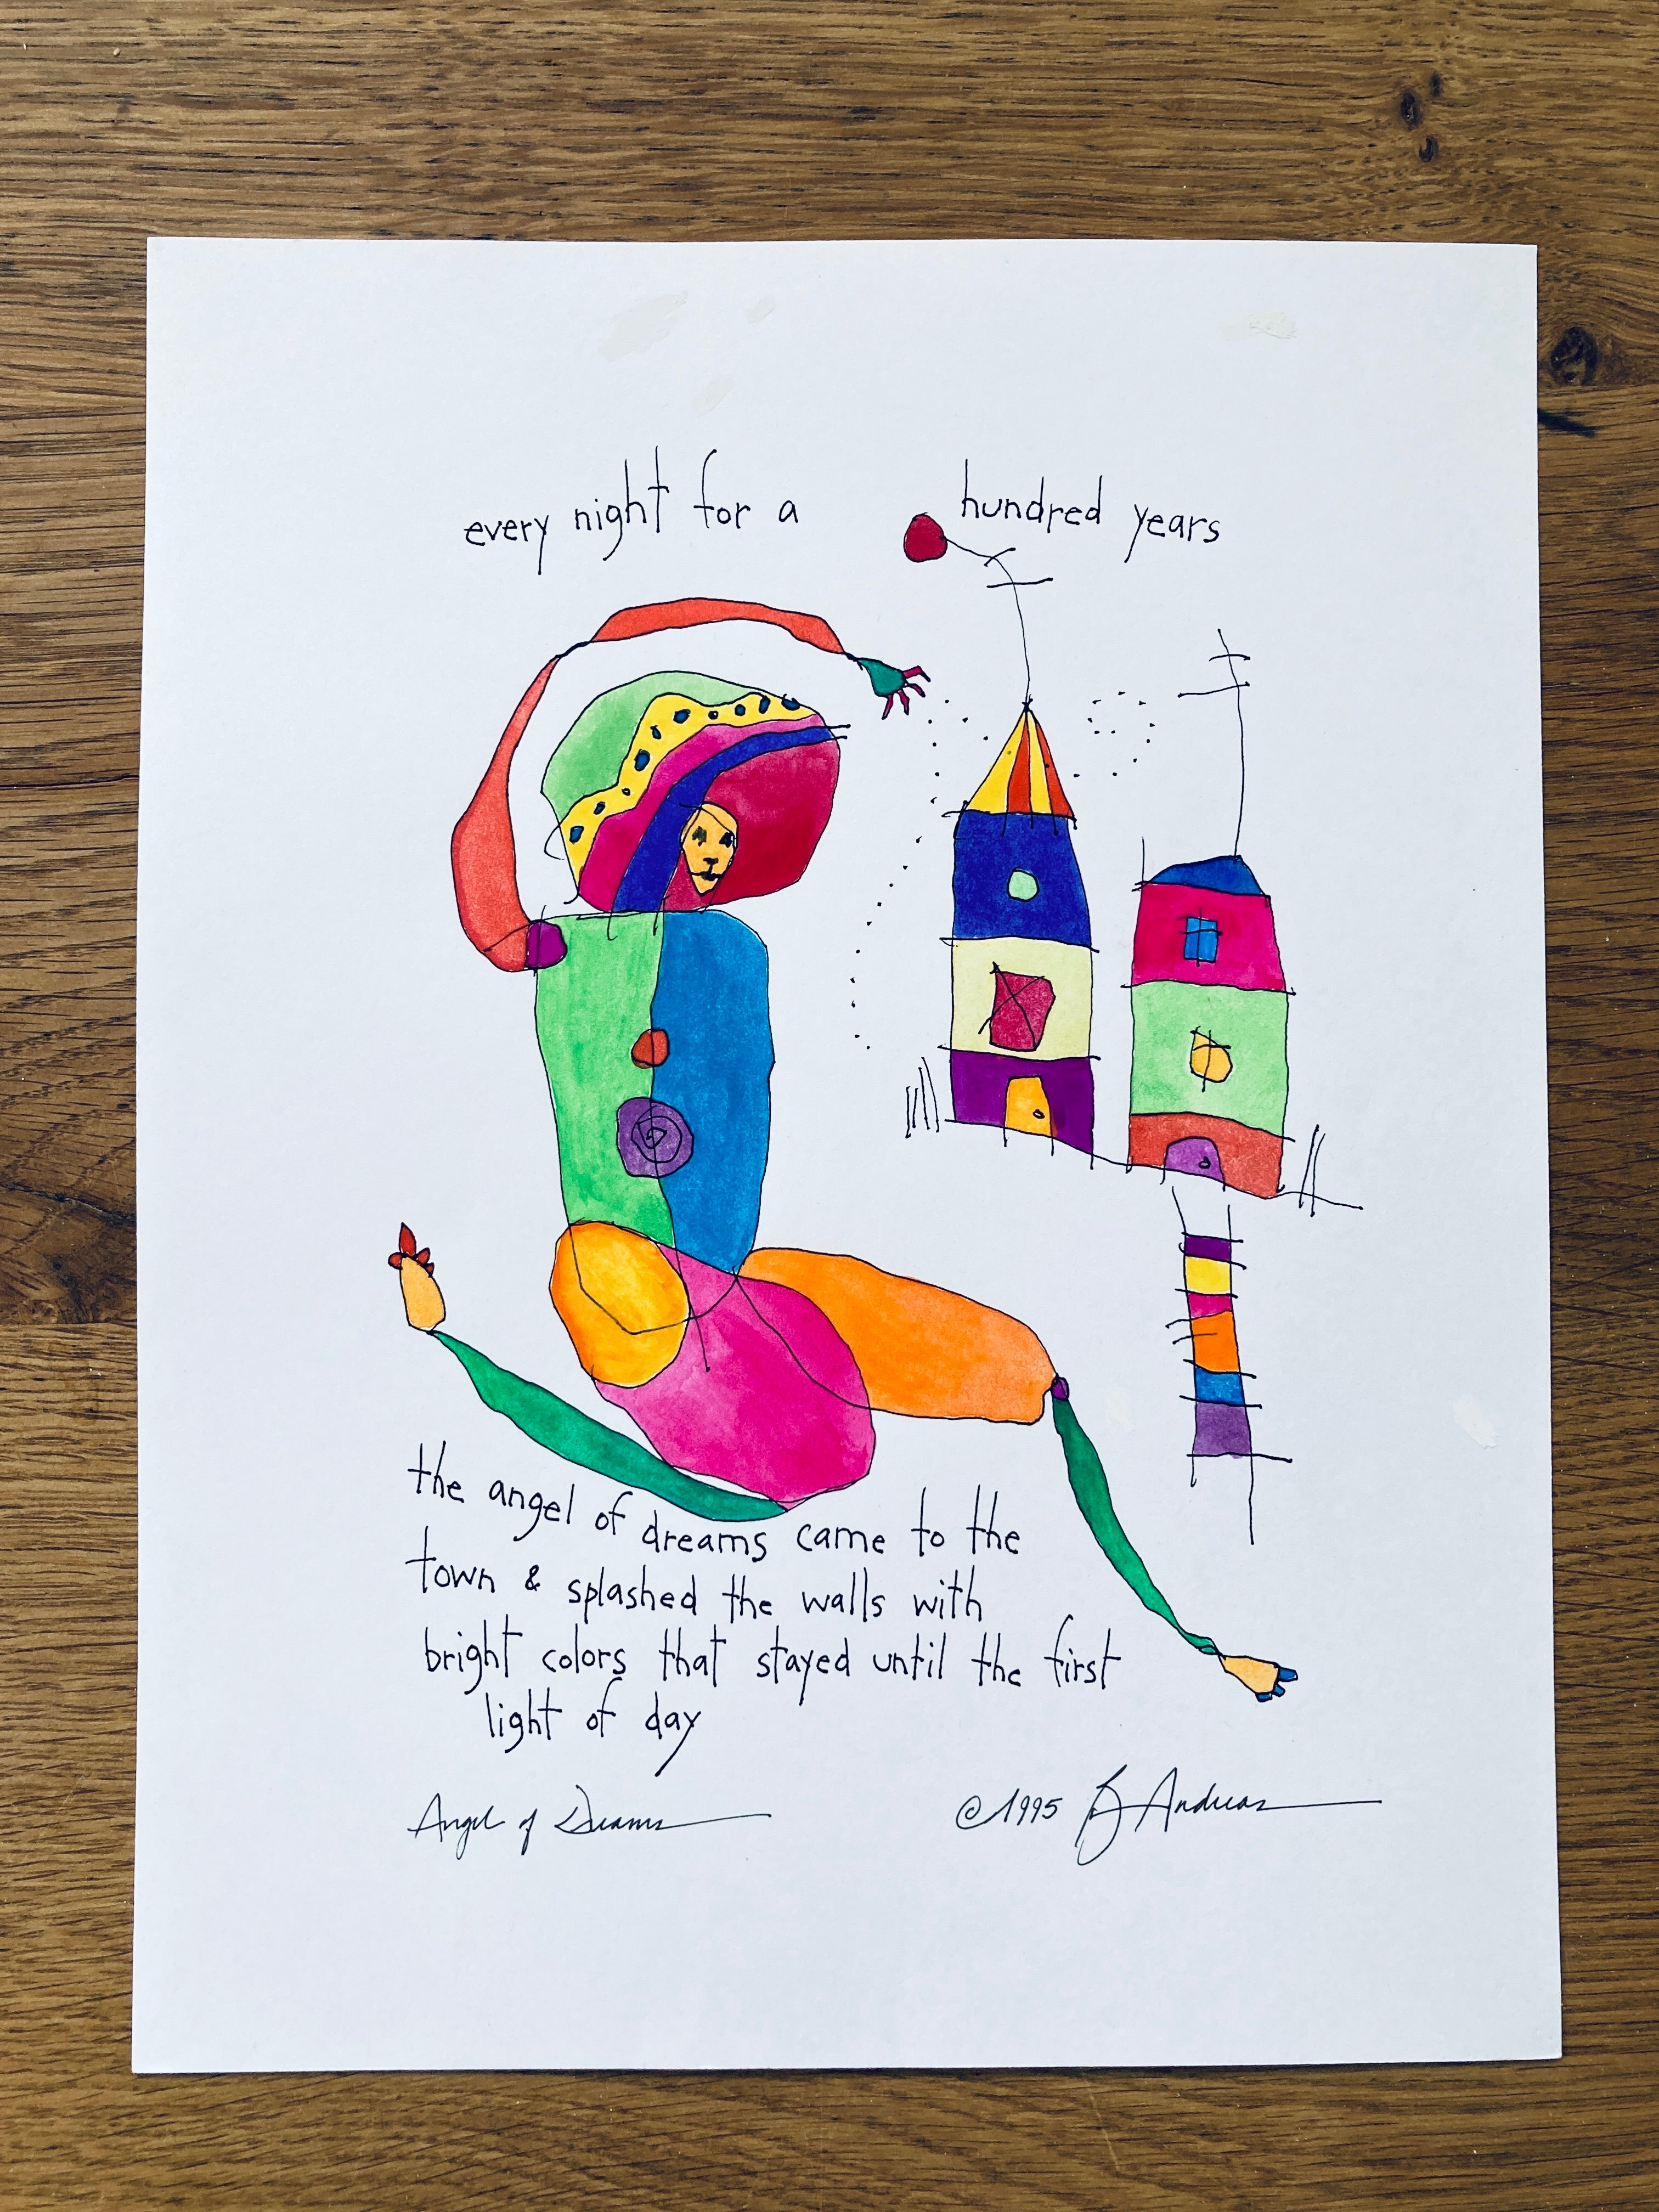 every night for a hundred years
the angel of dreams came to the
town & splashed the walls with
bright colors that stayed until the first
light of day
Angel of Dreams ©1995 B Andreas